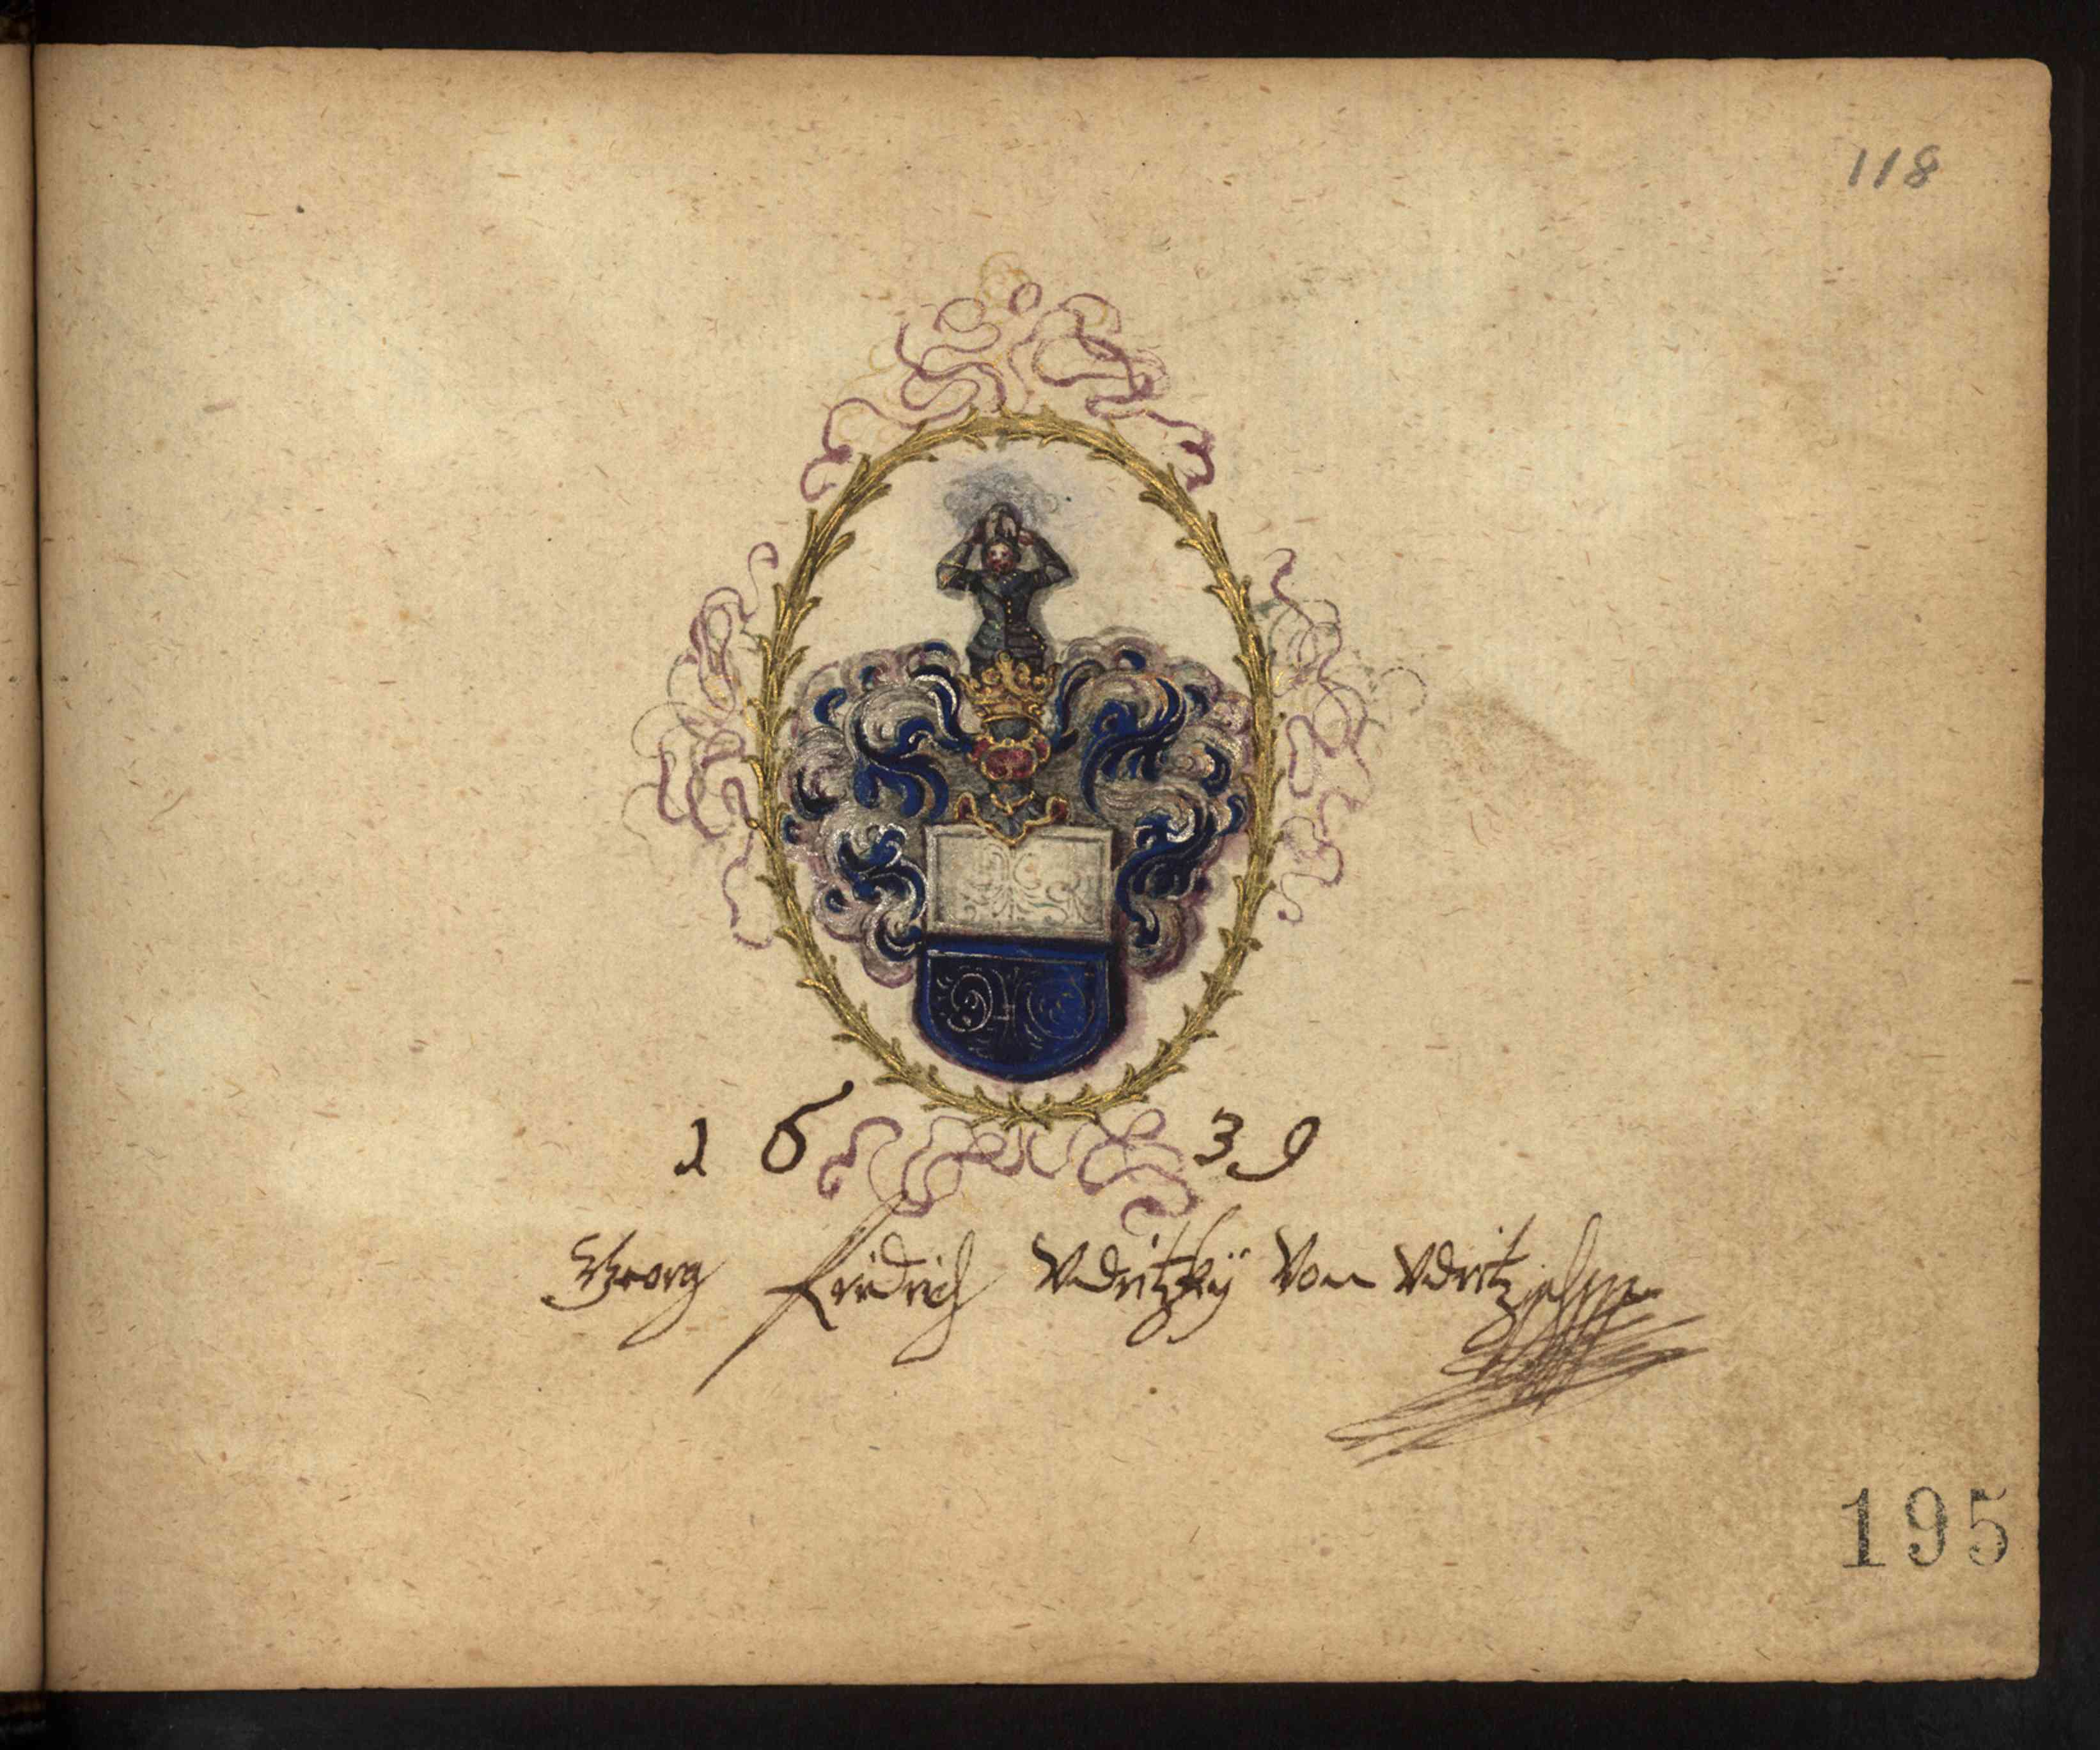 118
1 6 3 9
Georg Fridrich Vdritzkÿ Von Vdritz
195